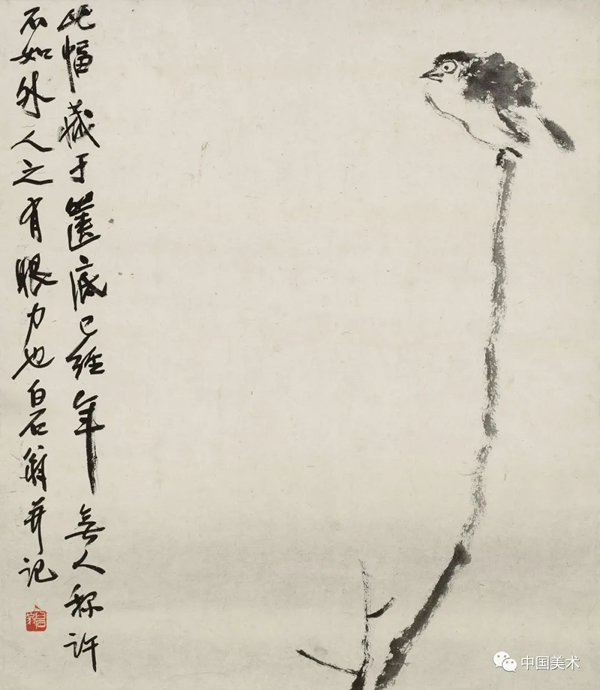 此幅藏于箧底已经年无人称许
不如外人之有眼力也白石翁并记
中国美术